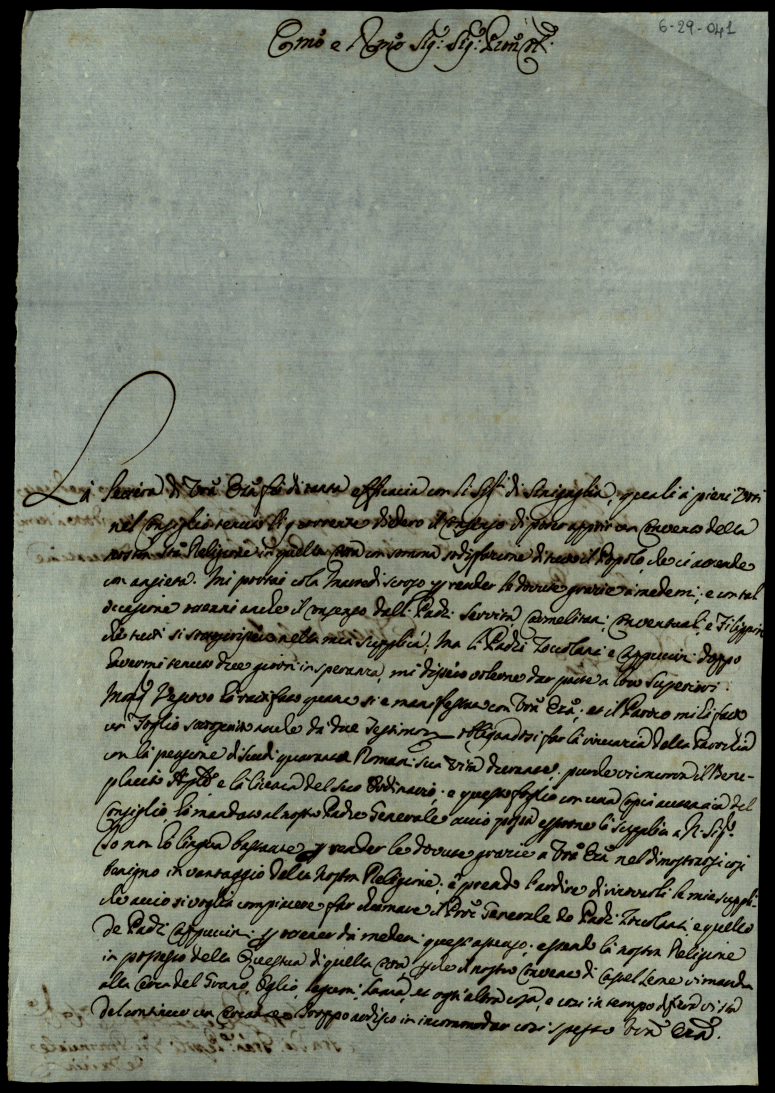 6-29-041
Emo e Rmo Sig: Sig: Pron Col:
La lettera di Vra Ema fù di tanta efficacia con li Sigri di Senigaglia, quali à pieni Voti
nel Consiglio tenuto li corrente diedero il consenso di poter aprir un Convento della
nostra Sta Religione in quella Città con somma sodisfazione di tutto il Popolo, che ci attende
con ansietà. Mi portai colà Martedi scorso per render le dovute grazie à medemi; e con tal
occasione ottenni anche il consenso dalli Padri Serviti, Carmelitani, Conventuali, e Filippini
che tutti si sottoscrissero nella mia supplica; Ma li Padri Zoccolanti e Cappuccini doppo
havermi tenuto due giorni in speranza, mi dissero volerne dar parte a loro Superiori.
Monsr Vescovo hà ratificato quanto si è manifestato con Vra Ema; et il Parroco mi hà fatto
un Foglio sottoscritto anche da due Testimonii obligandosi far la rinuncia della Parochia
con la pensione di scudi quaranta Romani sua vita durante; purche vi concorra il Bene-
placito Aplico e la licenza del suo Ordinario; e questo foglio con una copia autentica del
Consiglio, hò mandato al nostro Padre Generale acciò possa esporre la supplica a N. Sigre.
Io non hò lingua bastante per render le dovute grazie a Vra Ema nel dimostrarsi così
benigno in vantaggio della nostra Religione; e prendo l'ardire di riceverli le mie suppli-
che acciò si voglia compiacere far chiamare il Pre Generale de Padri Zoccolanti, e quello
de Padri Cappuccini per ottener da medemi quest'assenso, essendo la nostra Religione
in possesso della Questua di quella Città che il nostro Convento di Castel Leone vi manda
alla Cerca del Grano, Oglio, legumi, lana, et ogn'altra cosa, e così in tempo di fiera vi stà
del continuo un Cercatore. Troppo ardisco in incommodar così spesso Vra Ema.